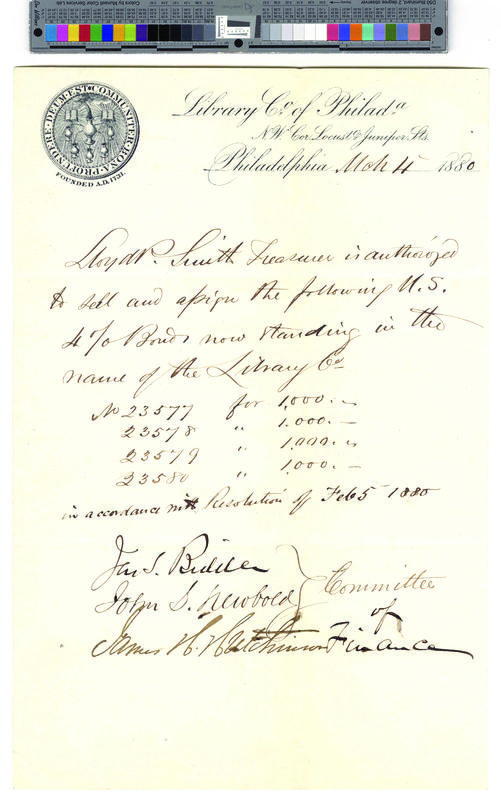 COMMUNITER·BONA·PROFUNDERE·DEUM·EST·
FOUNDED A.D. 1731.
Library Co. of Philada.
N.W. Cor. Locust & Juniper Sts.
Philadelphia Mch 4 1880
Lloyd P. Smith Treasurer is authorized
to sell and assign the following U.S.
4% Bonds now standing in the
name of the Library Co
No 23577 for 1,000.—
23578 " 1.000.—
23579 " 1,000.—
23580 " 1,000.—
in accordance with Resolution of Feb 5 1880
Jas S. Biddle
John S. Newbold
James H. Hutchinson
Committee
of
Finance